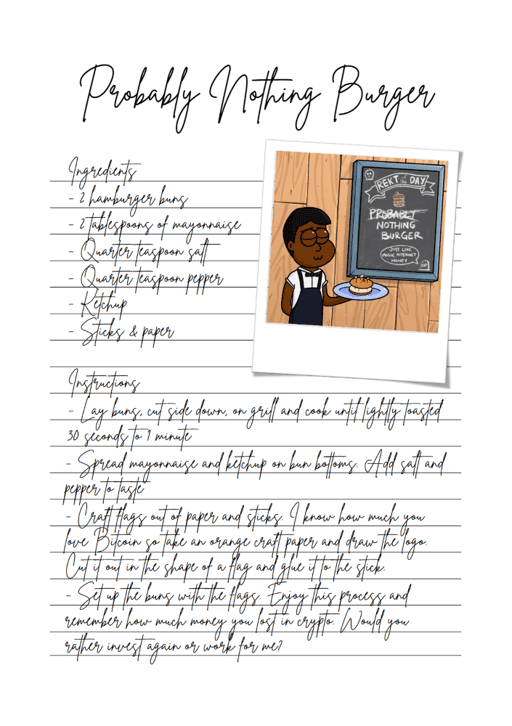 Probably Nothing Burger
Ingredients
- 2 hamburger buns
- 2 tablespoons of mayonnaise
- Quarter teaspoon salt
- Quarter teaspoon pepper
- Ketchup
- Sticks & paper
REKT OF THE DAY
PROBABLY
NOTHING
BURGER
JUST LIKE
MAGIC INTERNET
MONEY
Instructions
- Lay buns, cut side down, on grill and cook until lightly toasted
30 seconds to 1 minute
- Spread mayonnaise and ketchup on bun bottoms. Add salt and
pepper to taste
- Craft flags out of paper and sticks. I know how much you
love Bitcoin so take an orange craft paper and draw the logo.
Cut it out in the shape of a flag and glue it to the stick.
- Set up the buns with the flags. Enjoy this process and
remember how much money you lost in crypto. Would you
rather invest again or work for me?